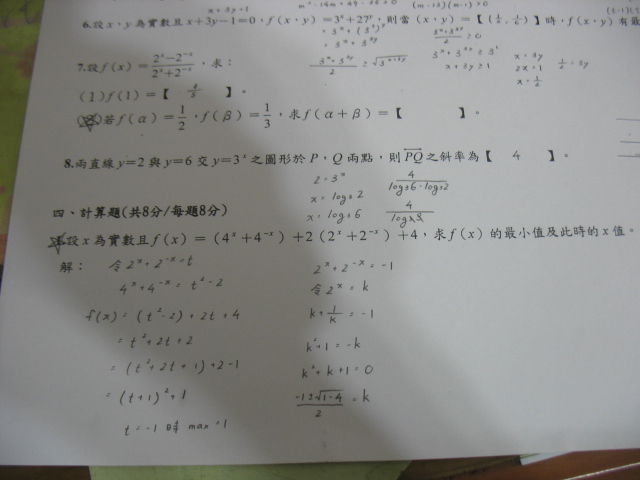 x+3y=1
6.設x,y為實數且x+3y-1=0,f(x,y)=3ˣ+27ʸ,則當(x,y)=【(½, )】時,f(x,y)有最
=3ˣ+(3³)ʸ
=3ˣ+3³ʸ
x=3y
2x=1
x=½
½=3y
7.設f(x)=(2ˣ-2⁻ˣ)/(2ˣ+2⁻ˣ),求:
(1)f(1)=【 3/5 】。
(2)若f(α)=1/2,f(β)=1/3,求f(α+β)=【 】。
8.兩直線y=2與y=6交y=3ˣ之圖形於P,Q兩點,則PQ之斜率為【 4 】。
2=3ˣ
x=log₃2
x=log₃6
4/(log₃6-log₃2)
4/log₃3
四、計算題(共8分/每題8分)
1.設x為實數且f(x)=(4ˣ+4⁻ˣ)+2(2ˣ+2⁻ˣ)+4,求f(x)的最小值及此時的x值。
解:令2ˣ+2⁻ˣ=t
4ˣ+4⁻ˣ=t²-2
f(x)=(t²-2)+2t+4
=t²+2t+2
=(t²+2t+1)+2-1
=(t+1)²+1
t=-1時 max=1
2ˣ+2⁻ˣ=-1
令2ˣ=k
k+1/k=-1
k²+1=-k
k²+k+1=0
(-1±√(1-4))/2=k